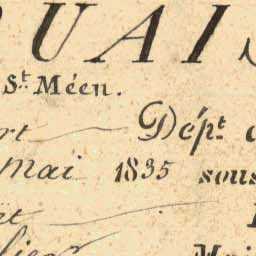 UAI
St Méen.
rt Dépt. d
mai 1835 sous
et
lier Mai